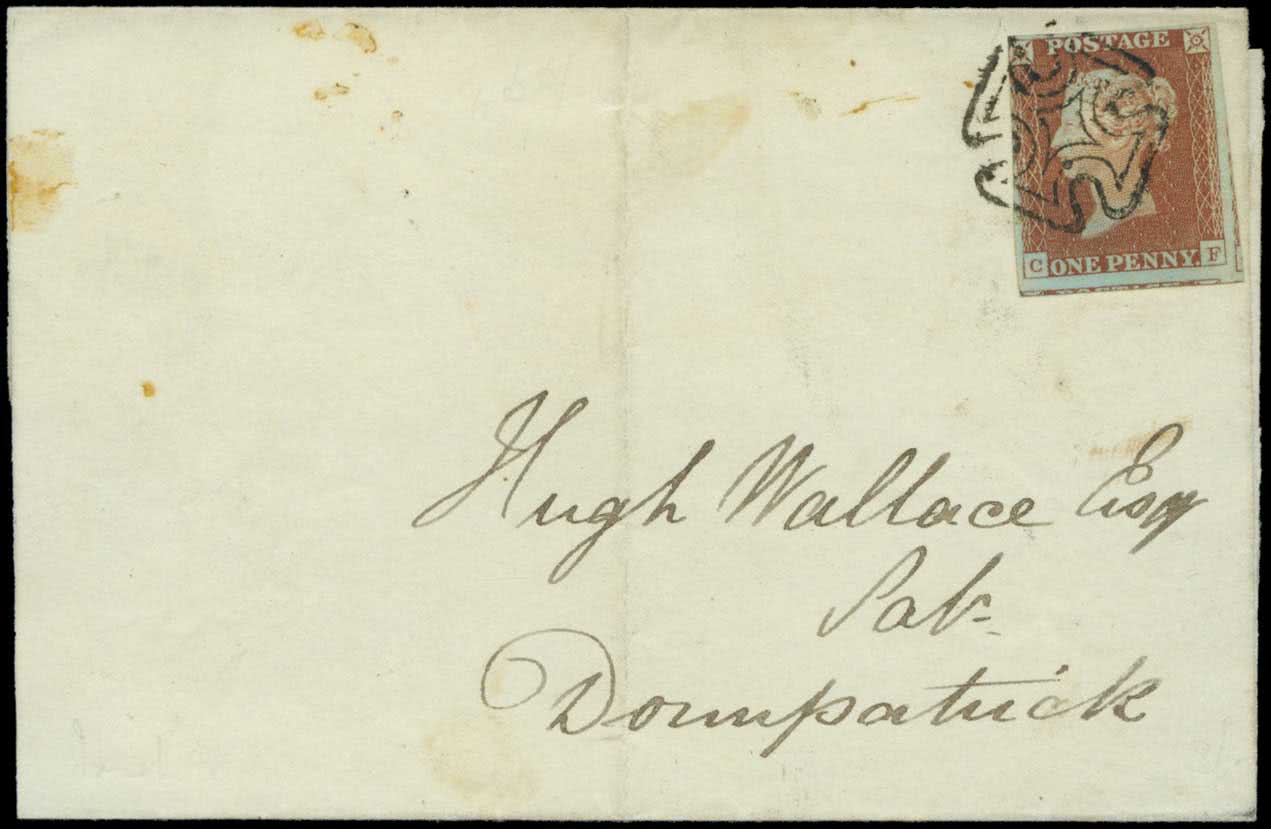 POSTAGE
C ONE PENNY. F
Hugh Wallace Esq
Downpatrick